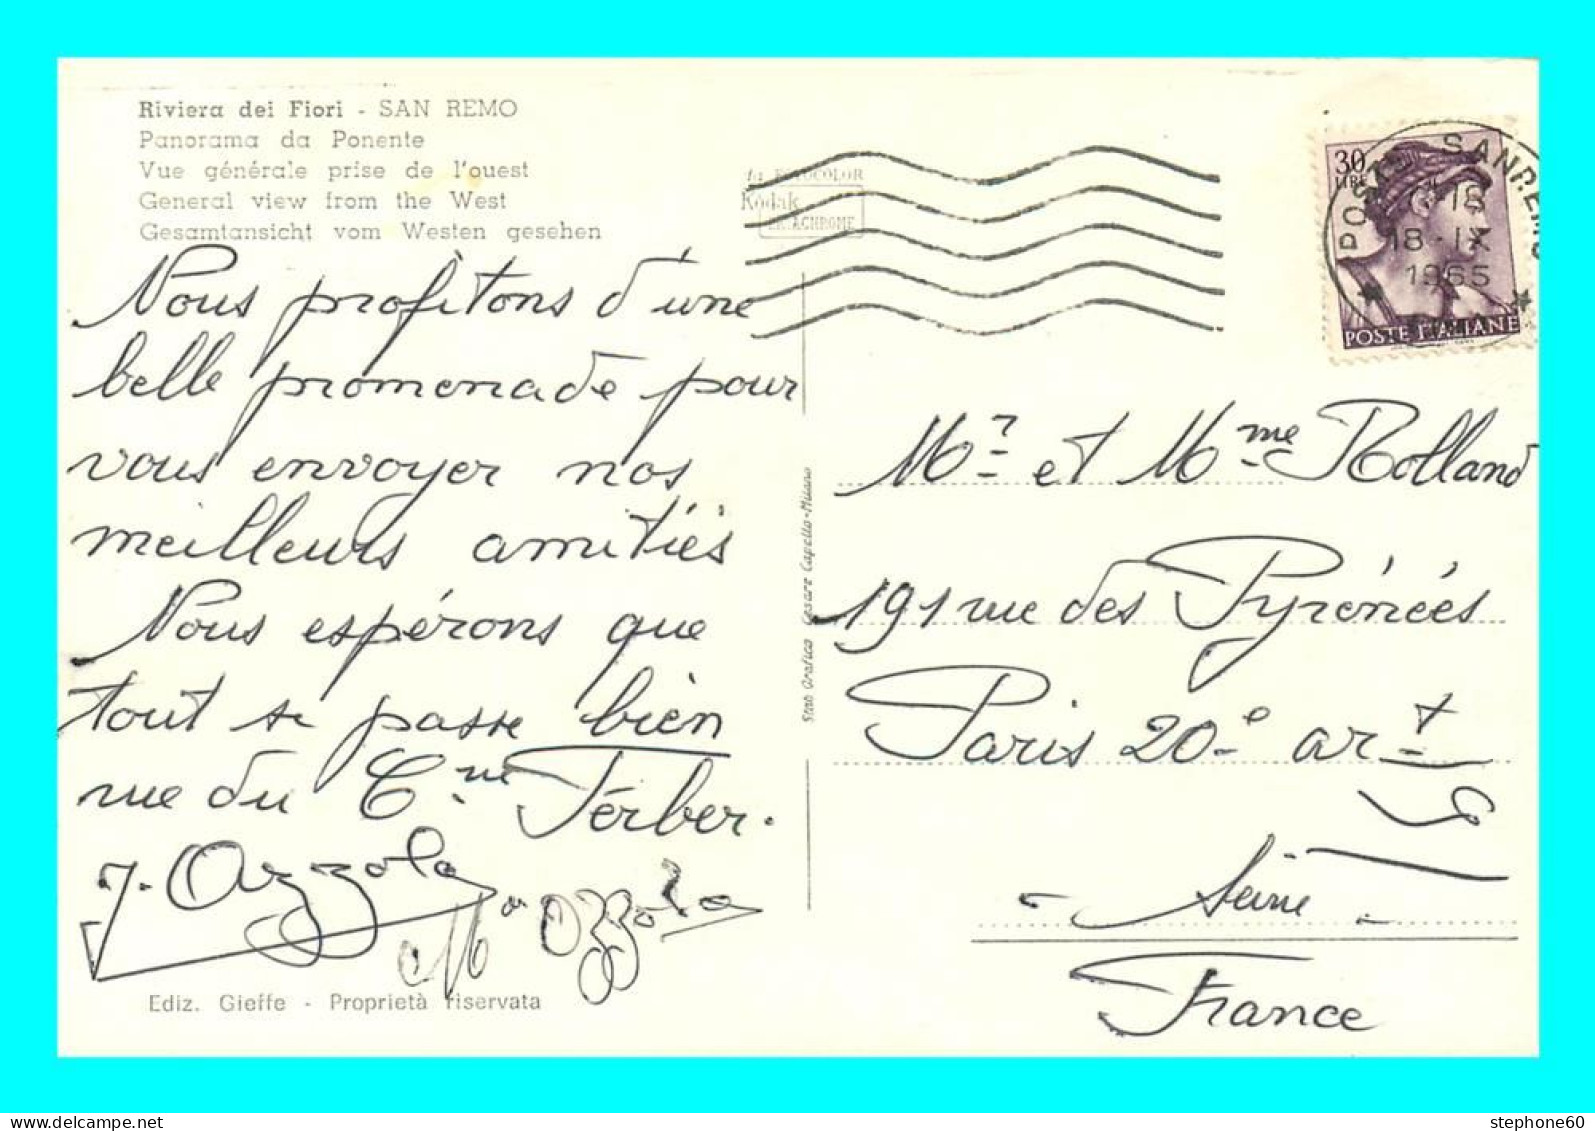 Riviera dei Fiori - SAN REMO
Panorama da Ponente
Vue générale prise de l'ouest
General view from the West
Gesamtansicht vom Westen gesehen
Nous profitons d'une
belle promenade pour
vous envoyer nos
meilleurs amitiés
Nous espérons que
tout se passe bien
rue du Cne Ferber.
J. Azzola
Ediz. Gieffe - Proprietà riservata
FOTOCOLOR
Kodak
Stab. Grafico Cesare Capello-Milano
30
LIRE
POSTE ITALIANE
POSTE SANREMO
18 · IX
1965
Mr et Mme Rolland
191 rue des Pyrénées
Paris 20e art
- Seine -
France
stephone60